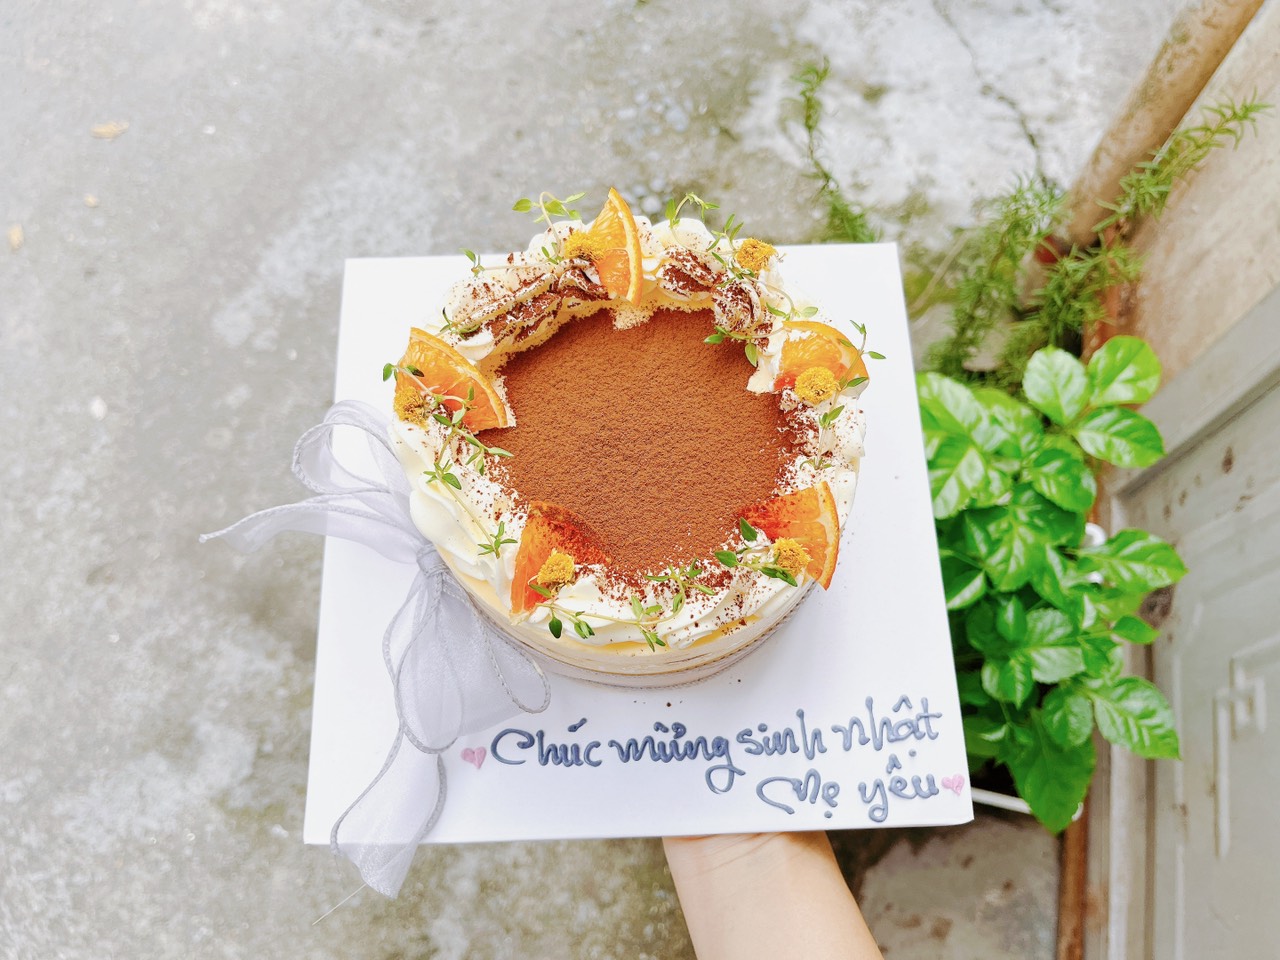 Chúc mừng sinh nhật
Mẹ yêu